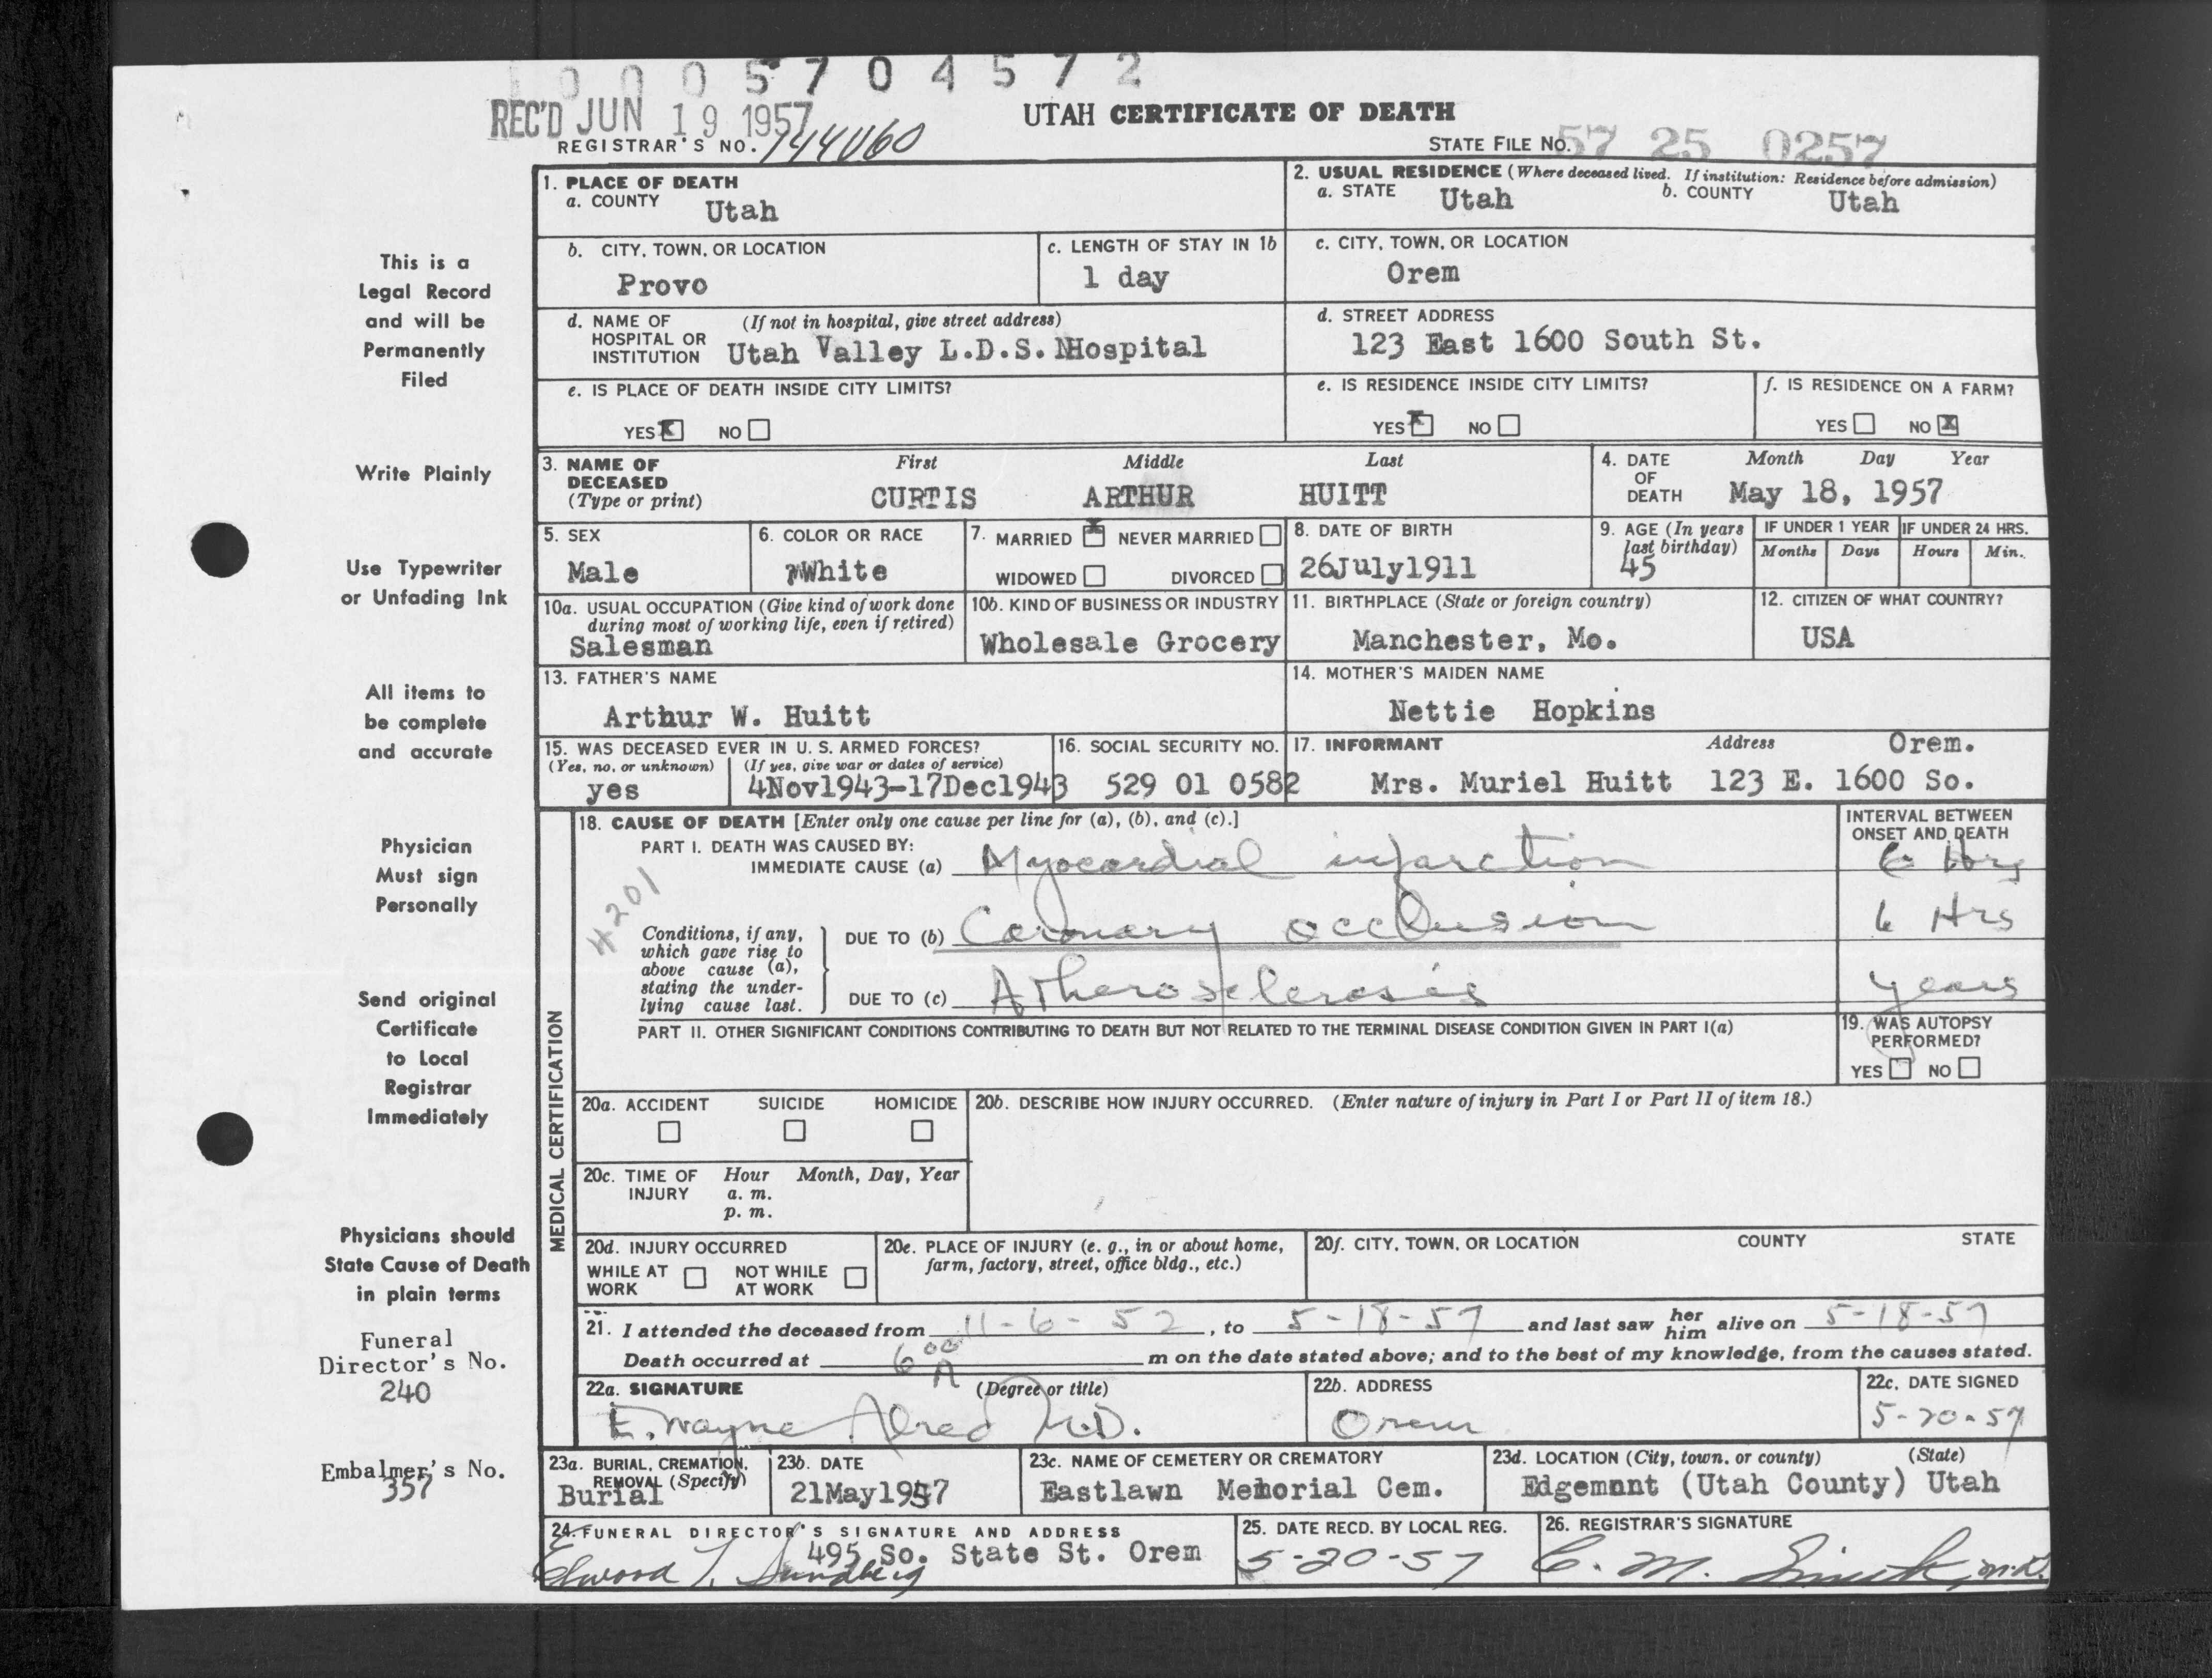 0 0 0 5 7 0 4 5 7 2
REC'D JUN 19 1957
UTAH CERTIFICATE OF DEATH
REGISTRAR'S NO.
STATE FILE NO. 57 25 0257
1. PLACE OF DEATH
a. COUNTY Utah
2. USUAL RESIDENCE (Where deceased lived. If institution: Residence before admission)
a. STATE Utah b. COUNTY Utah
b. CITY, TOWN, OR LOCATION
Provo
c. LENGTH OF STAY IN 1b
1 day
c. CITY, TOWN, OR LOCATION
Orem
d. NAME OF HOSPITAL OR INSTITUTION (If not in hospital, give street address)
Utah Valley L.D.S. Hospital
d. STREET ADDRESS
123 East 1600 South St.
e. IS PLACE OF DEATH INSIDE CITY LIMITS?
YES X NO
e. IS RESIDENCE INSIDE CITY LIMITS?
YES X NO
f. IS RESIDENCE ON A FARM?
YES NO X
3. NAME OF DECEASED (Type or print)
First Middle Last
CURTIS ARTHUR HUITT
4. DATE OF DEATH
Month Day Year
May 18, 1957
5. SEX
Male
6. COLOR OR RACE
White
7. MARRIED X NEVER MARRIED
WIDOWED DIVORCED
8. DATE OF BIRTH
26July1911
9. AGE (In years last birthday)
45
IF UNDER 1 YEAR
Months Days
IF UNDER 24 HRS.
Hours Min.
10a. USUAL OCCUPATION (Give kind of work done during most of working life, even if retired)
Salesman
10b. KIND OF BUSINESS OR INDUSTRY
Wholesale Grocery
11. BIRTHPLACE (State or foreign country)
Manchester, Mo.
12. CITIZEN OF WHAT COUNTRY?
USA
13. FATHER'S NAME
Arthur W. Huitt
14. MOTHER'S MAIDEN NAME
Nettie Hopkins
15. WAS DECEASED EVER IN U. S. ARMED FORCES?
(Yes, no, or unknown) (If yes, give war or dates of service)
yes 4Nov1943-17Dec1943
16. SOCIAL SECURITY NO.
529 01 0582
17. INFORMANT Address Orem.
Mrs. Muriel Huitt 123 E. 1600 So.
MEDICAL CERTIFICATION
18. CAUSE OF DEATH [Enter only one cause per line for (a), (b), and (c).]
INTERVAL BETWEEN ONSET AND DEATH
PART I. DEATH WAS CAUSED BY:
IMMEDIATE CAUSE (a) Myocardial infarction 6 Hrs
4201
Conditions, if any, which gave rise to above cause (a), stating the underlying cause last.
DUE TO (b) Coronary occlusion 6 Hrs
DUE TO (c) Atherosclerosis years
PART II. OTHER SIGNIFICANT CONDITIONS CONTRIBUTING TO DEATH BUT NOT RELATED TO THE TERMINAL DISEASE CONDITION GIVEN IN PART I(a)
19. WAS AUTOPSY PERFORMED?
YES NO
20a. ACCIDENT SUICIDE HOMICIDE
20b. DESCRIBE HOW INJURY OCCURRED. (Enter nature of injury in Part I or Part II of item 18.)
20c. TIME OF INJURY Hour Month, Day, Year
a. m.
p. m.
20d. INJURY OCCURRED
WHILE AT WORK NOT WHILE AT WORK
20e. PLACE OF INJURY (e. g., in or about home, farm, factory, street, office bldg., etc.)
20f. CITY, TOWN, OR LOCATION COUNTY STATE
21. I attended the deceased from 11-6-52, to 5-18-57 and last saw her him alive on 5-18-57
Death occurred at 6 00 A m on the date stated above; and to the best of my knowledge, from the causes stated.
22a. SIGNATURE (Degree or title)
E. Wayne Allred M.D.
22b. ADDRESS
Orem
22c. DATE SIGNED
5-20-57
23a. BURIAL, CREMATION, REMOVAL (Specify)
Burial
23b. DATE
21May1957
23c. NAME OF CEMETERY OR CREMATORY
Eastlawn Memorial Cem.
23d. LOCATION (City, town, or county) (State)
Edgemont (Utah County) Utah
24. FUNERAL DIRECTOR'S SIGNATURE AND ADDRESS
495 So. State St. Orem
Elwood L. Sundberg
25. DATE RECD. BY LOCAL REG.
5-20-57
26. REGISTRAR'S SIGNATURE
C. M. Smith, M.D.
This is a
Legal Record
and will be
Permanently
Filed
Write Plainly
Use Typewriter
or Unfading Ink
All items to
be complete
and accurate
Physician
Must sign
Personally
Send original
Certificate
to Local
Registrar
Immediately
Physicians should
State Cause of Death
in plain terms
Funeral
Director's No.
240
Embalmer's No.
357